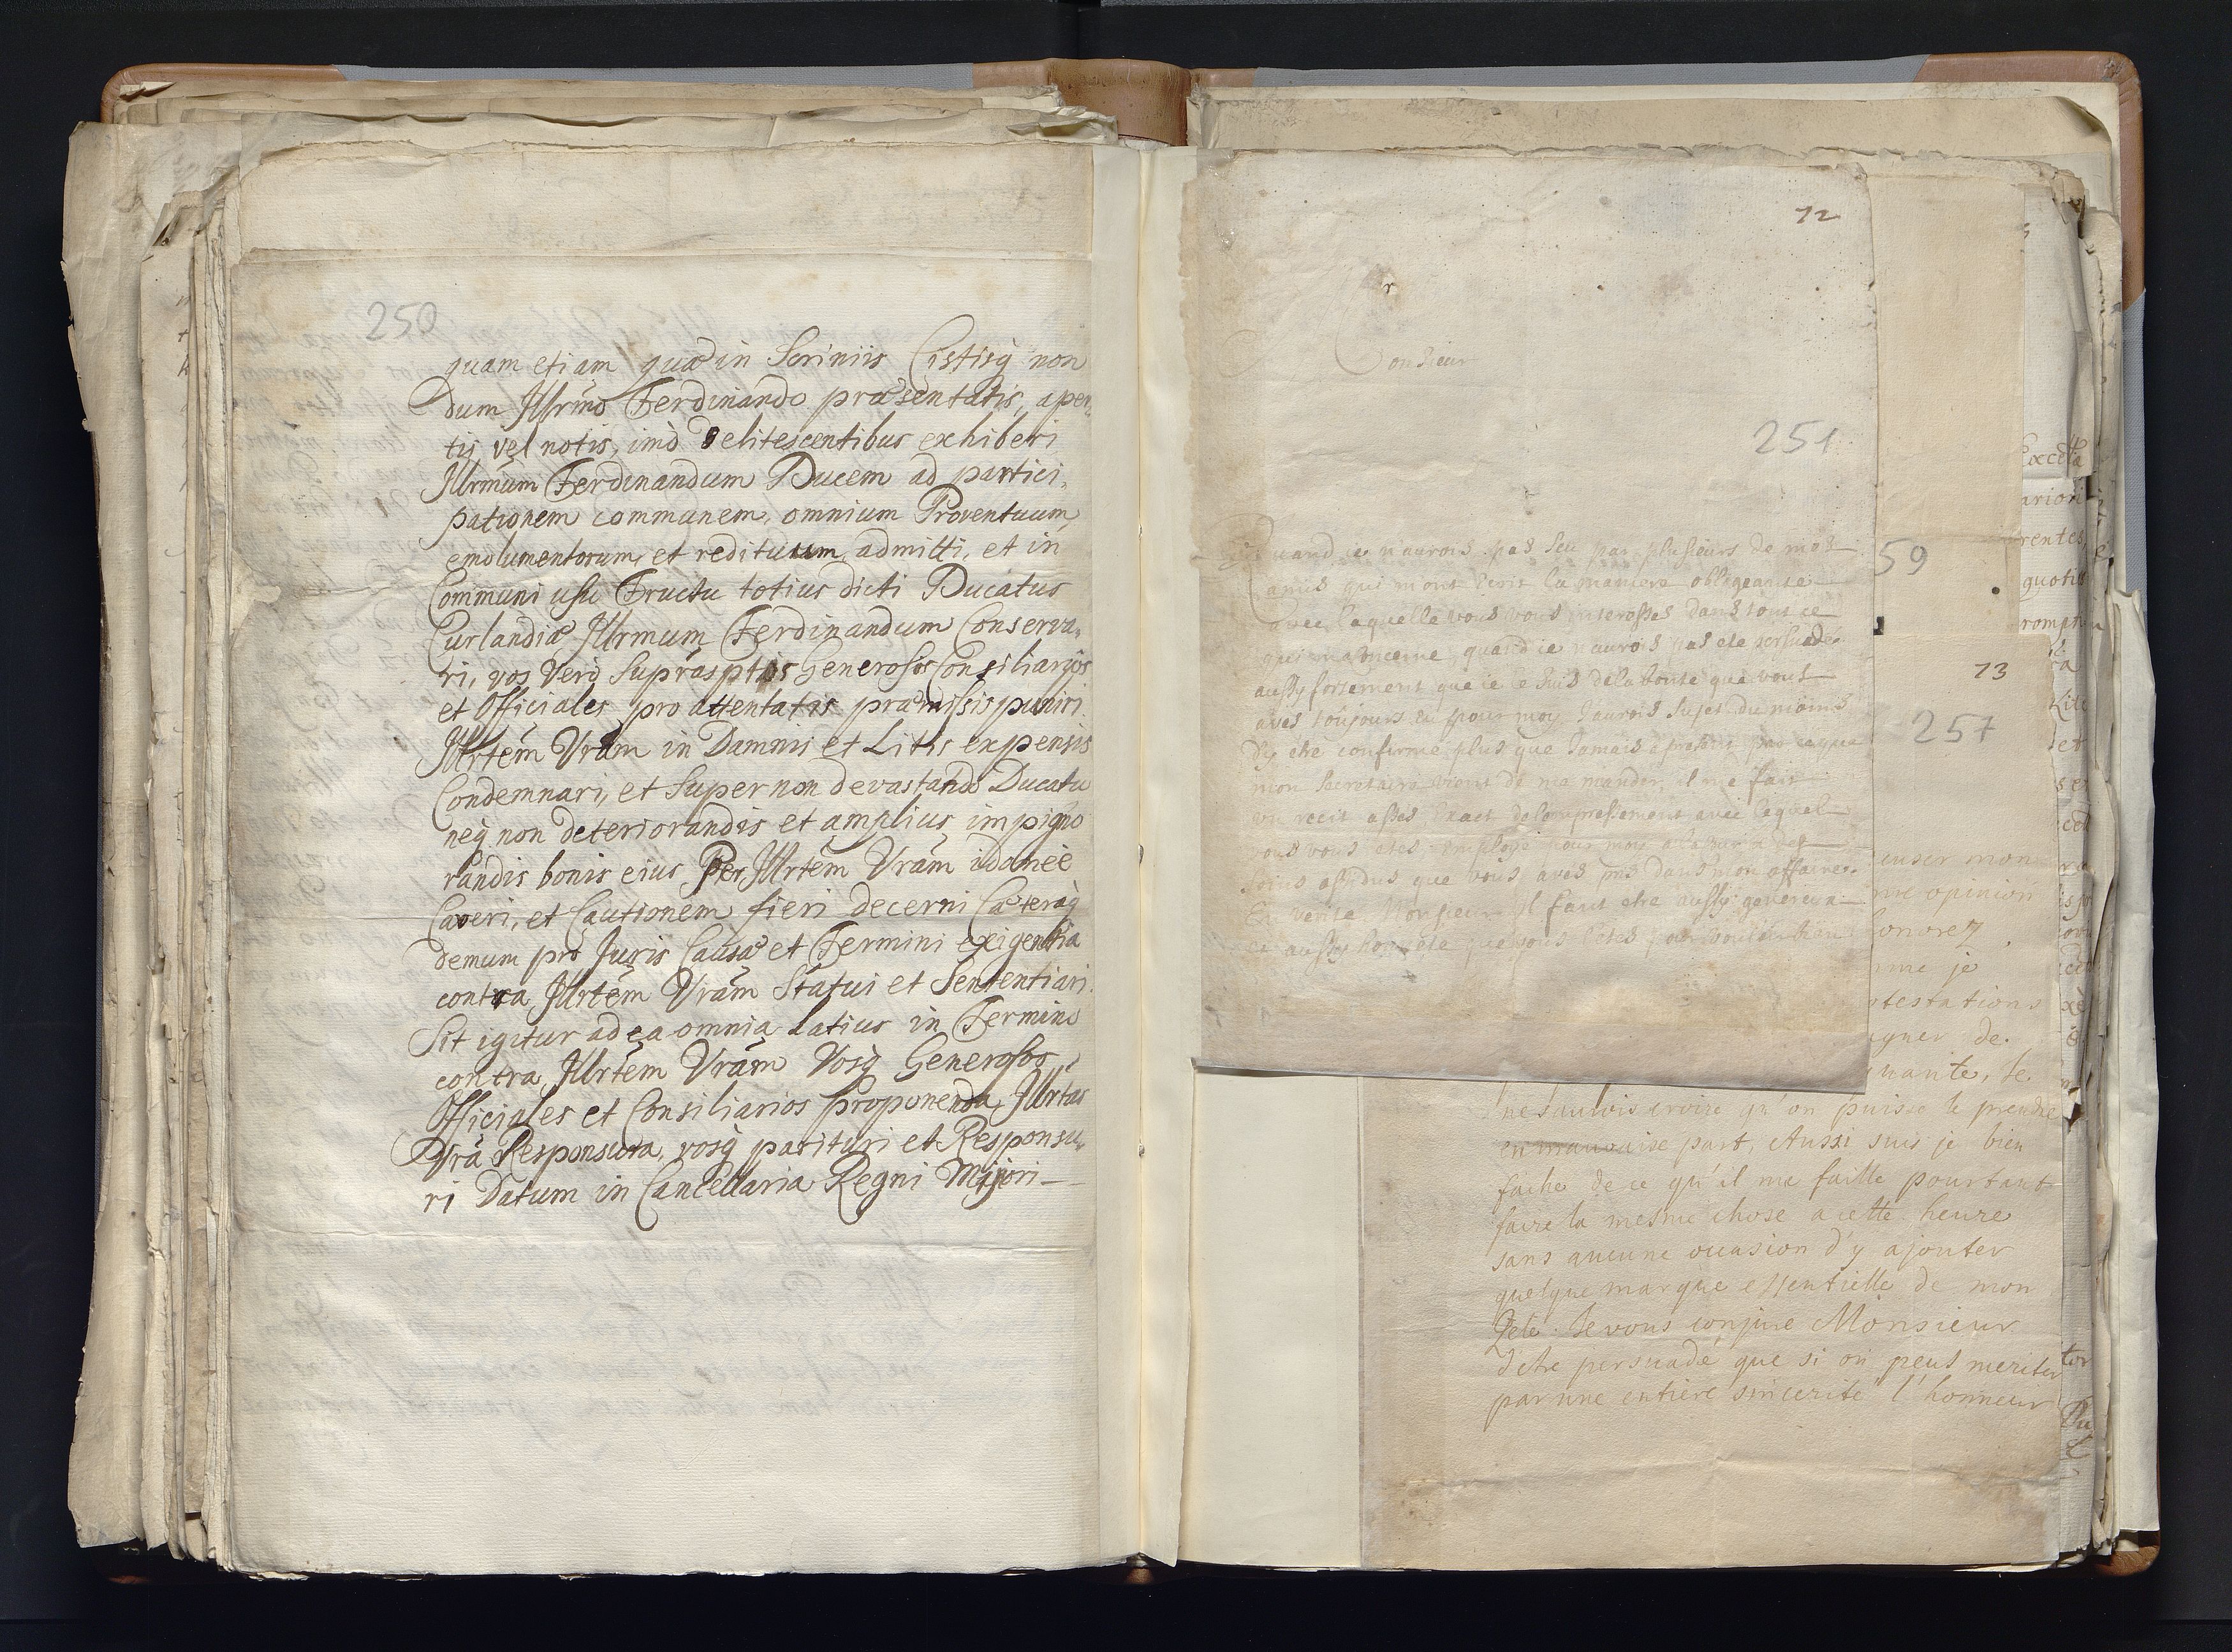 250
quam etiam quæ in Scriniis Cistisq̃ non
dum Illrimo Ferdinando præsentatis, aper,
tis vel notis, imò delitescentibus exhiberi
Illrmum Ferdinandum Ducem ad partici,
pationem communem, omnium Proventuum,
emolumentorum, et redituum admitti, et in
Communi usu Fructu totius dicti Ducatus
Curlandiæ Illrmum Ferdinandum Conserva,
ri, vos Verò Suprasptos Generosos Consiliarios
et Officiales pro attentatis præmissis puniri
Illrtem Vrãm in Damnis et Litis expensis
Condemnari, et Super non devastando Ducatu
neq̃ non deteriorandis et amplius impigno
randis bonis eius Per Illrtem Vrãm idoneè
Caveri, et Cautionem fieri decerni Cæteraq̃
demum pro Juris Causæ et Termini exigentia
contra Illrtem Vrãm Statui et Sententiari.
Sit igitur ad ea omnia Latius in Termino
contra Illrtem Vrãm Vosq̃ Generosos
Officiales et Consiliarios proponenda, Illrtas
Vrã Responsura, vosq̃ parituri et Responsu,
ri Datum in Cancellaria Regni Majori
12
Monsieur
251
Quand ie n'aurois pas seu par plusieurs de mes
amis qui mont Écrit la maniere obligeante
avec laquelle vous vous interesses dans tout ce
qui me concerne, quand ie n'aurois pas ete persuadé
aussy fortement que ie le suis de la bonté que vous
avés toujours eu pour moy J'aurois sujet du moins
d'y etre confirmé plus que Jamais à present par ce que
mon secretaire vient de me mander, il me fait
un recit assés exact de l'empressement avec lequel
vous vous etes employé pour moy a la
soins assidus que vous avés pris dans mon affaire.
En verité Monsieur il faut etre aussy genereux
et aussy honnete que vous l'etes pour vouloir bien
59
13
257
euser mon
me opinion
honorez
me je
testations
agner de
quante, Je
ne saurois croire qu'on puisse le prendre
en mauvaise part, Aussi suis je bien
faché de ce qu'il me faille pourtant
faire la mesme chose a cette heure
sans aucune occasion d'y ajouter
quelque marque essentielle de mon
Zele. Je vous conjure Monsieur
d'etre persuadé que si on peut meriter
par une entiere sincerité l'honneur